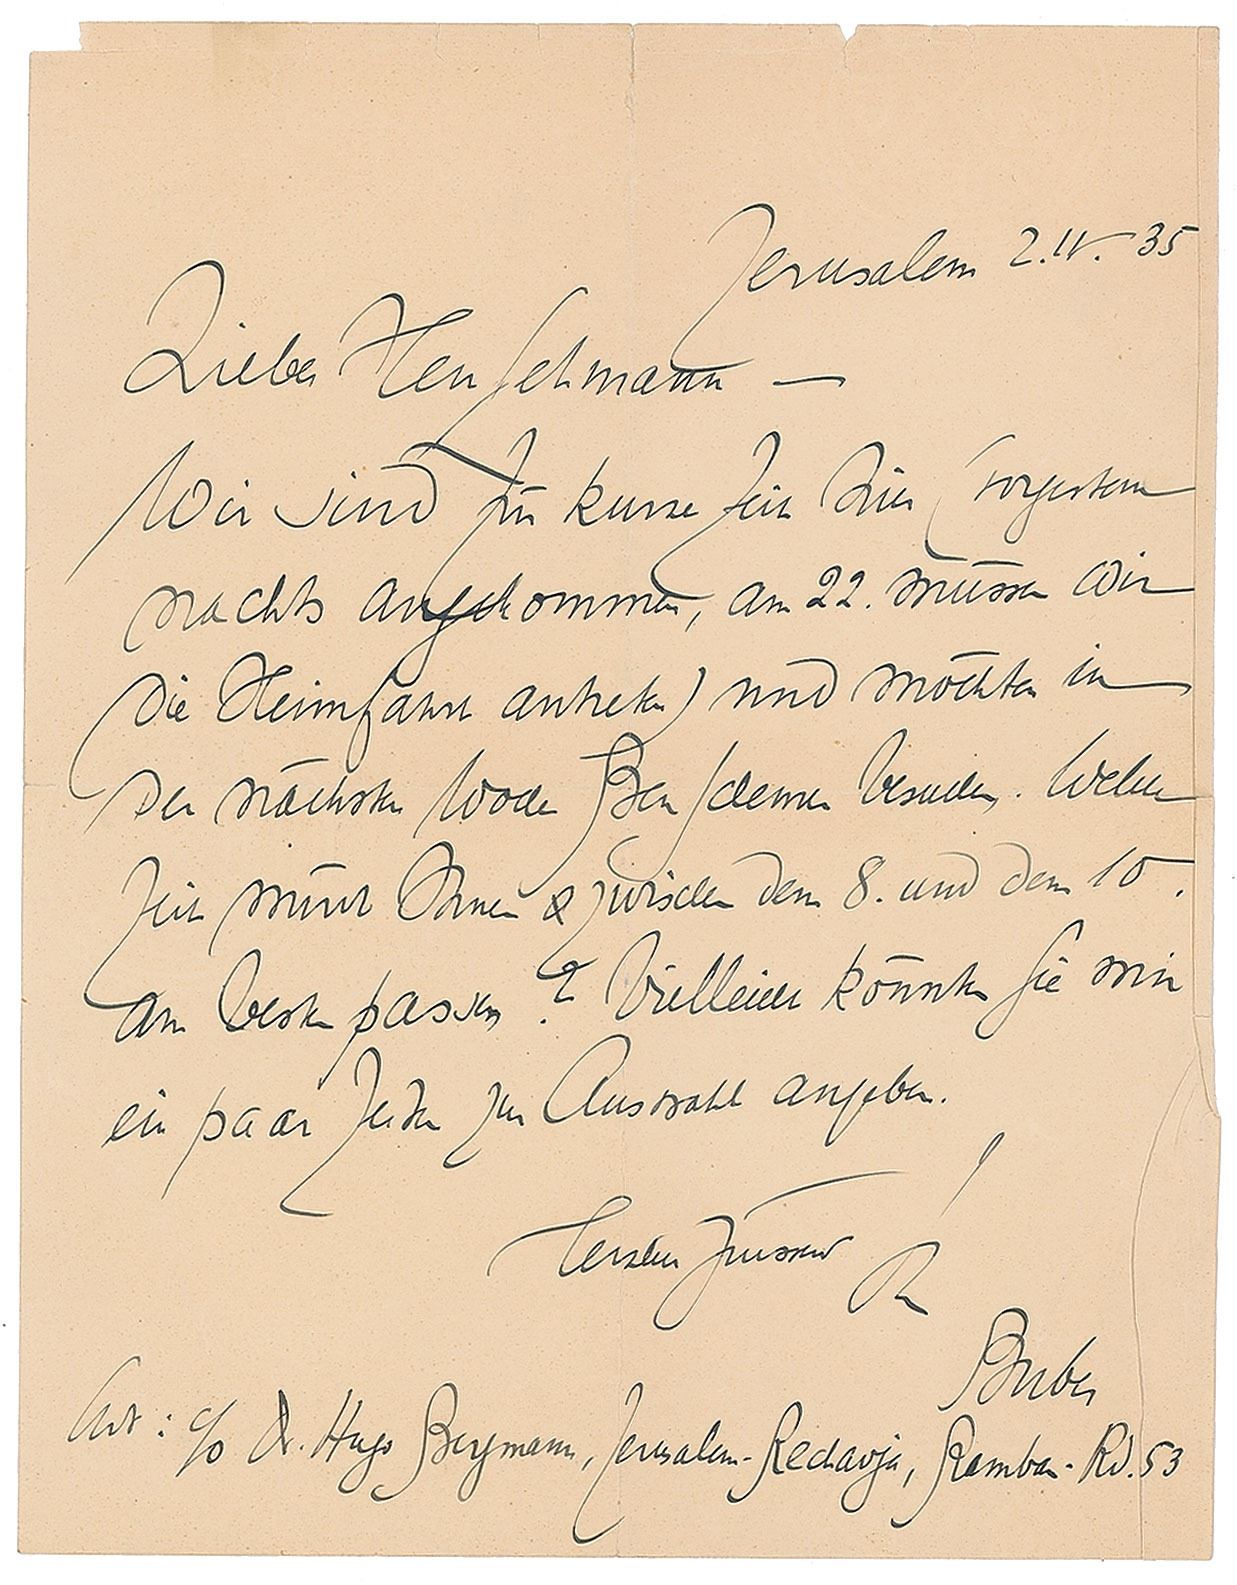 Jerusalem 2.IV. 35
Lieber Herr Lehmann –
Wir sind für kurze Zeit hier (vorgestern
nachts angekommen, am 22. müssen wir
die Heimfahrt antreten) und möchten in
der nächsten Woche Ben Schemen besuchen. Welche
Zeit würde Ihnen zwischen dem 8. und dem 10.
am besten passen? Vielleicht könnten Sie mir
ein paar Zeiten zur Auswahl angeben.
Herzlich grüssend
Ihr
Buber
Adr: c/o Dr. Hugo Bergmann, Jerusalem-Rechavja, Ramban-Rd. 53